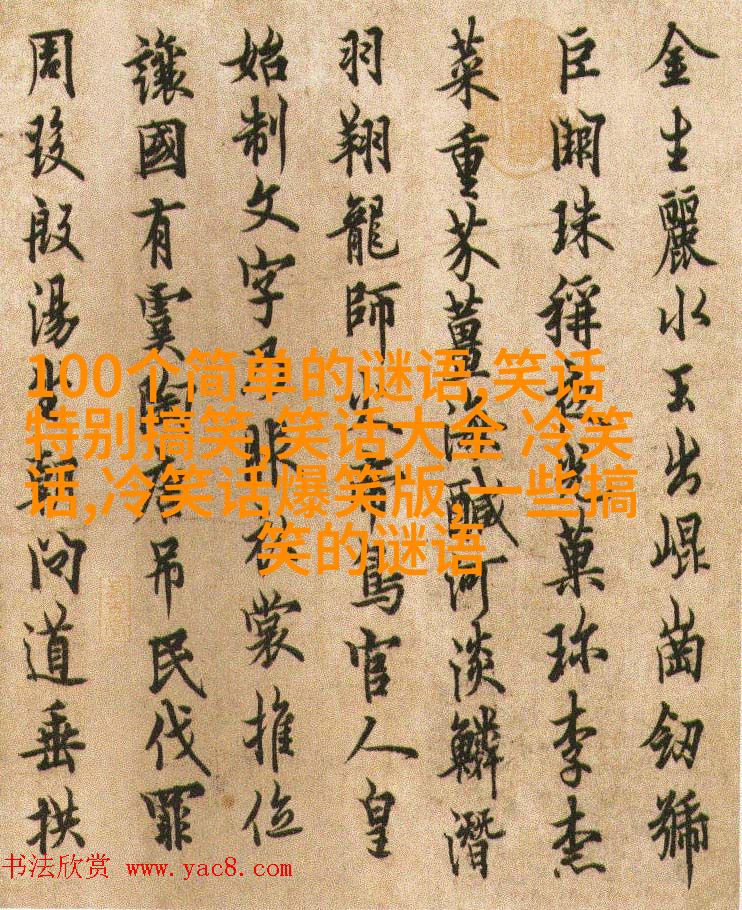 金生麗水玉出崐崗劒號
巨闕珠稱菓珎李柰
菜重芥薑海醎河淡鱗潛
羽翔龍師鳥官人皇
始制文字乃裳推位
讓國有虞陶吊民伐罪
周發殷湯坐朝問道垂拱
100个简单的谜语,笑话
特别搞笑,笑话大全 冷笑
话,冷笑话爆笑版,一些搞
笑的谜语
书法欣赏 www.yac8.com